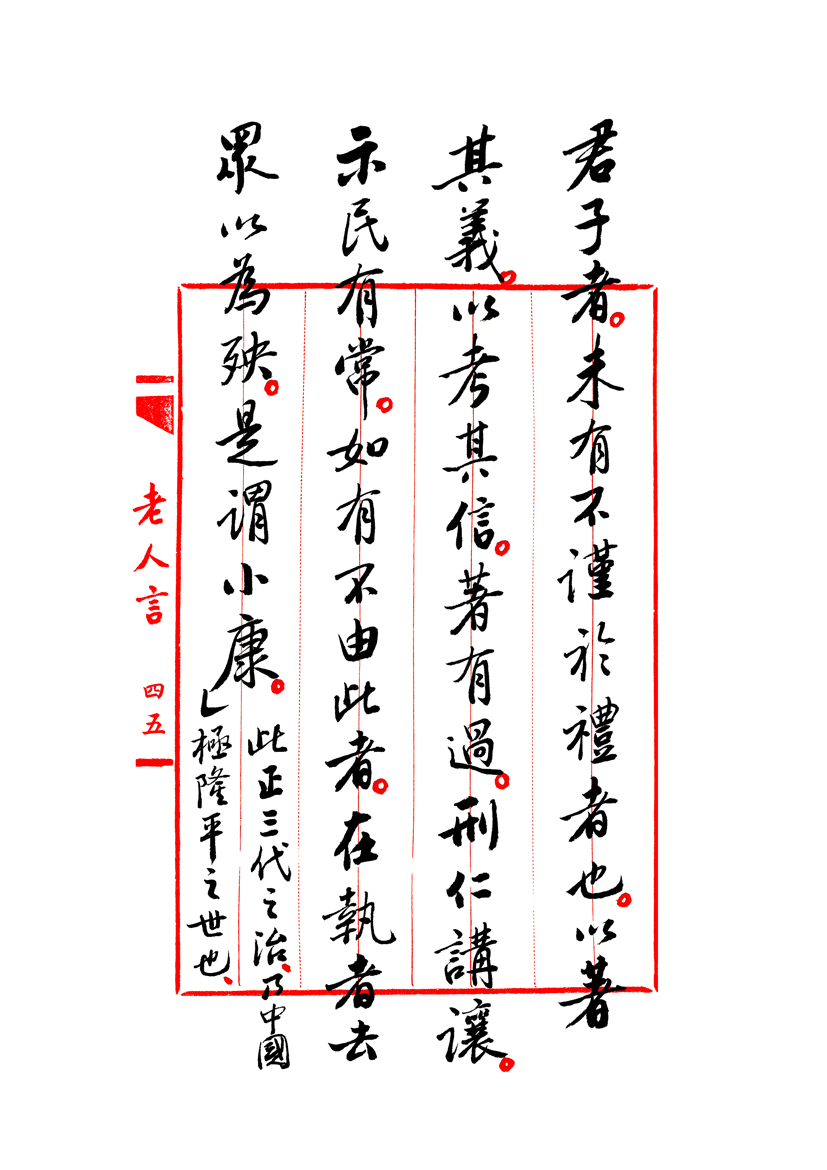 君子者。未有不謹於禮者也。以著
其義。以考其信。著有過。刑仁講讓。
示民有常。如有不由此者。在執者去
眾以為殃。是謂小康。」
此正三代之治、乃中國
極隆平之世也、
老人言
四五